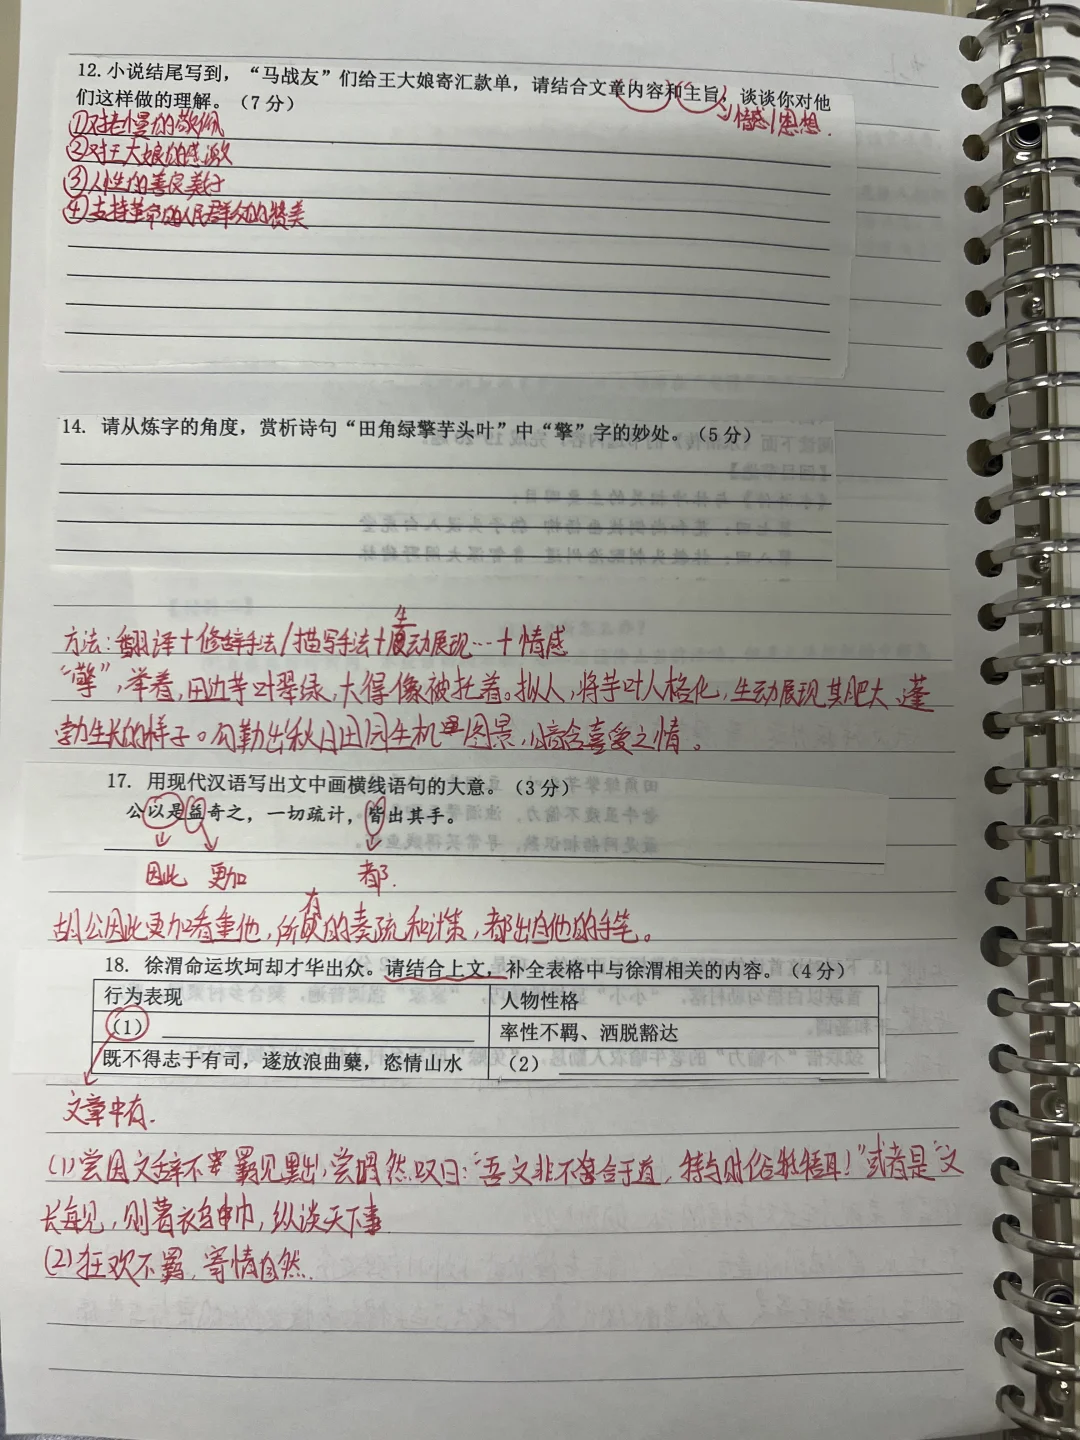 12.小说结尾写到，“马战友”们给王大娘寄汇款单，请结合文章内容和主旨，谈谈你对他
们这样做的理解。（7分）
情感/思想.
①对老个墨的敬佩
②对王大娘的感激
③人性的善良美好
④支持革命的人民群众的赞美
14. 请从炼字的角度，赏析诗句“田角绿擎芋头叶”中“擎”字的妙处。（5分）
方法：翻译+修辞手法/描写手法+生动展现…+情感
“擎”，举着，田边芋叶翠绿，大得像被托着。拟人，将芋叶人格化，生动展现其肥大、蓬
勃生长的样子。勾勒出秋日田园生机图景，暗含喜爱之情。
17. 用现代汉语写出文中画横线语句的大意。（3分）
公以是益奇之，一切疏计，皆出其手。
因此 更加 都.
胡公因此更加看重他，所有的奏疏和计策，都出自他的手笔。
18. 徐渭命运坎坷却才华出众。请结合上文，补全表格中与徐渭相关的内容。（4分）
行为表现 人物性格
（1） 率性不羁、洒脱豁达
既不得志于有司，遂放浪曲蘖，恣情山水 （2）
文章中有.
(1)尝因文辞不羁见黑出，尝喟然叹曰：“吾文非不合于道，特与时俗牴牾耳！”或者是“文
长每见，则葛衣乌巾，纵谈天下事
(2)狂欢不羁，寄情自然.